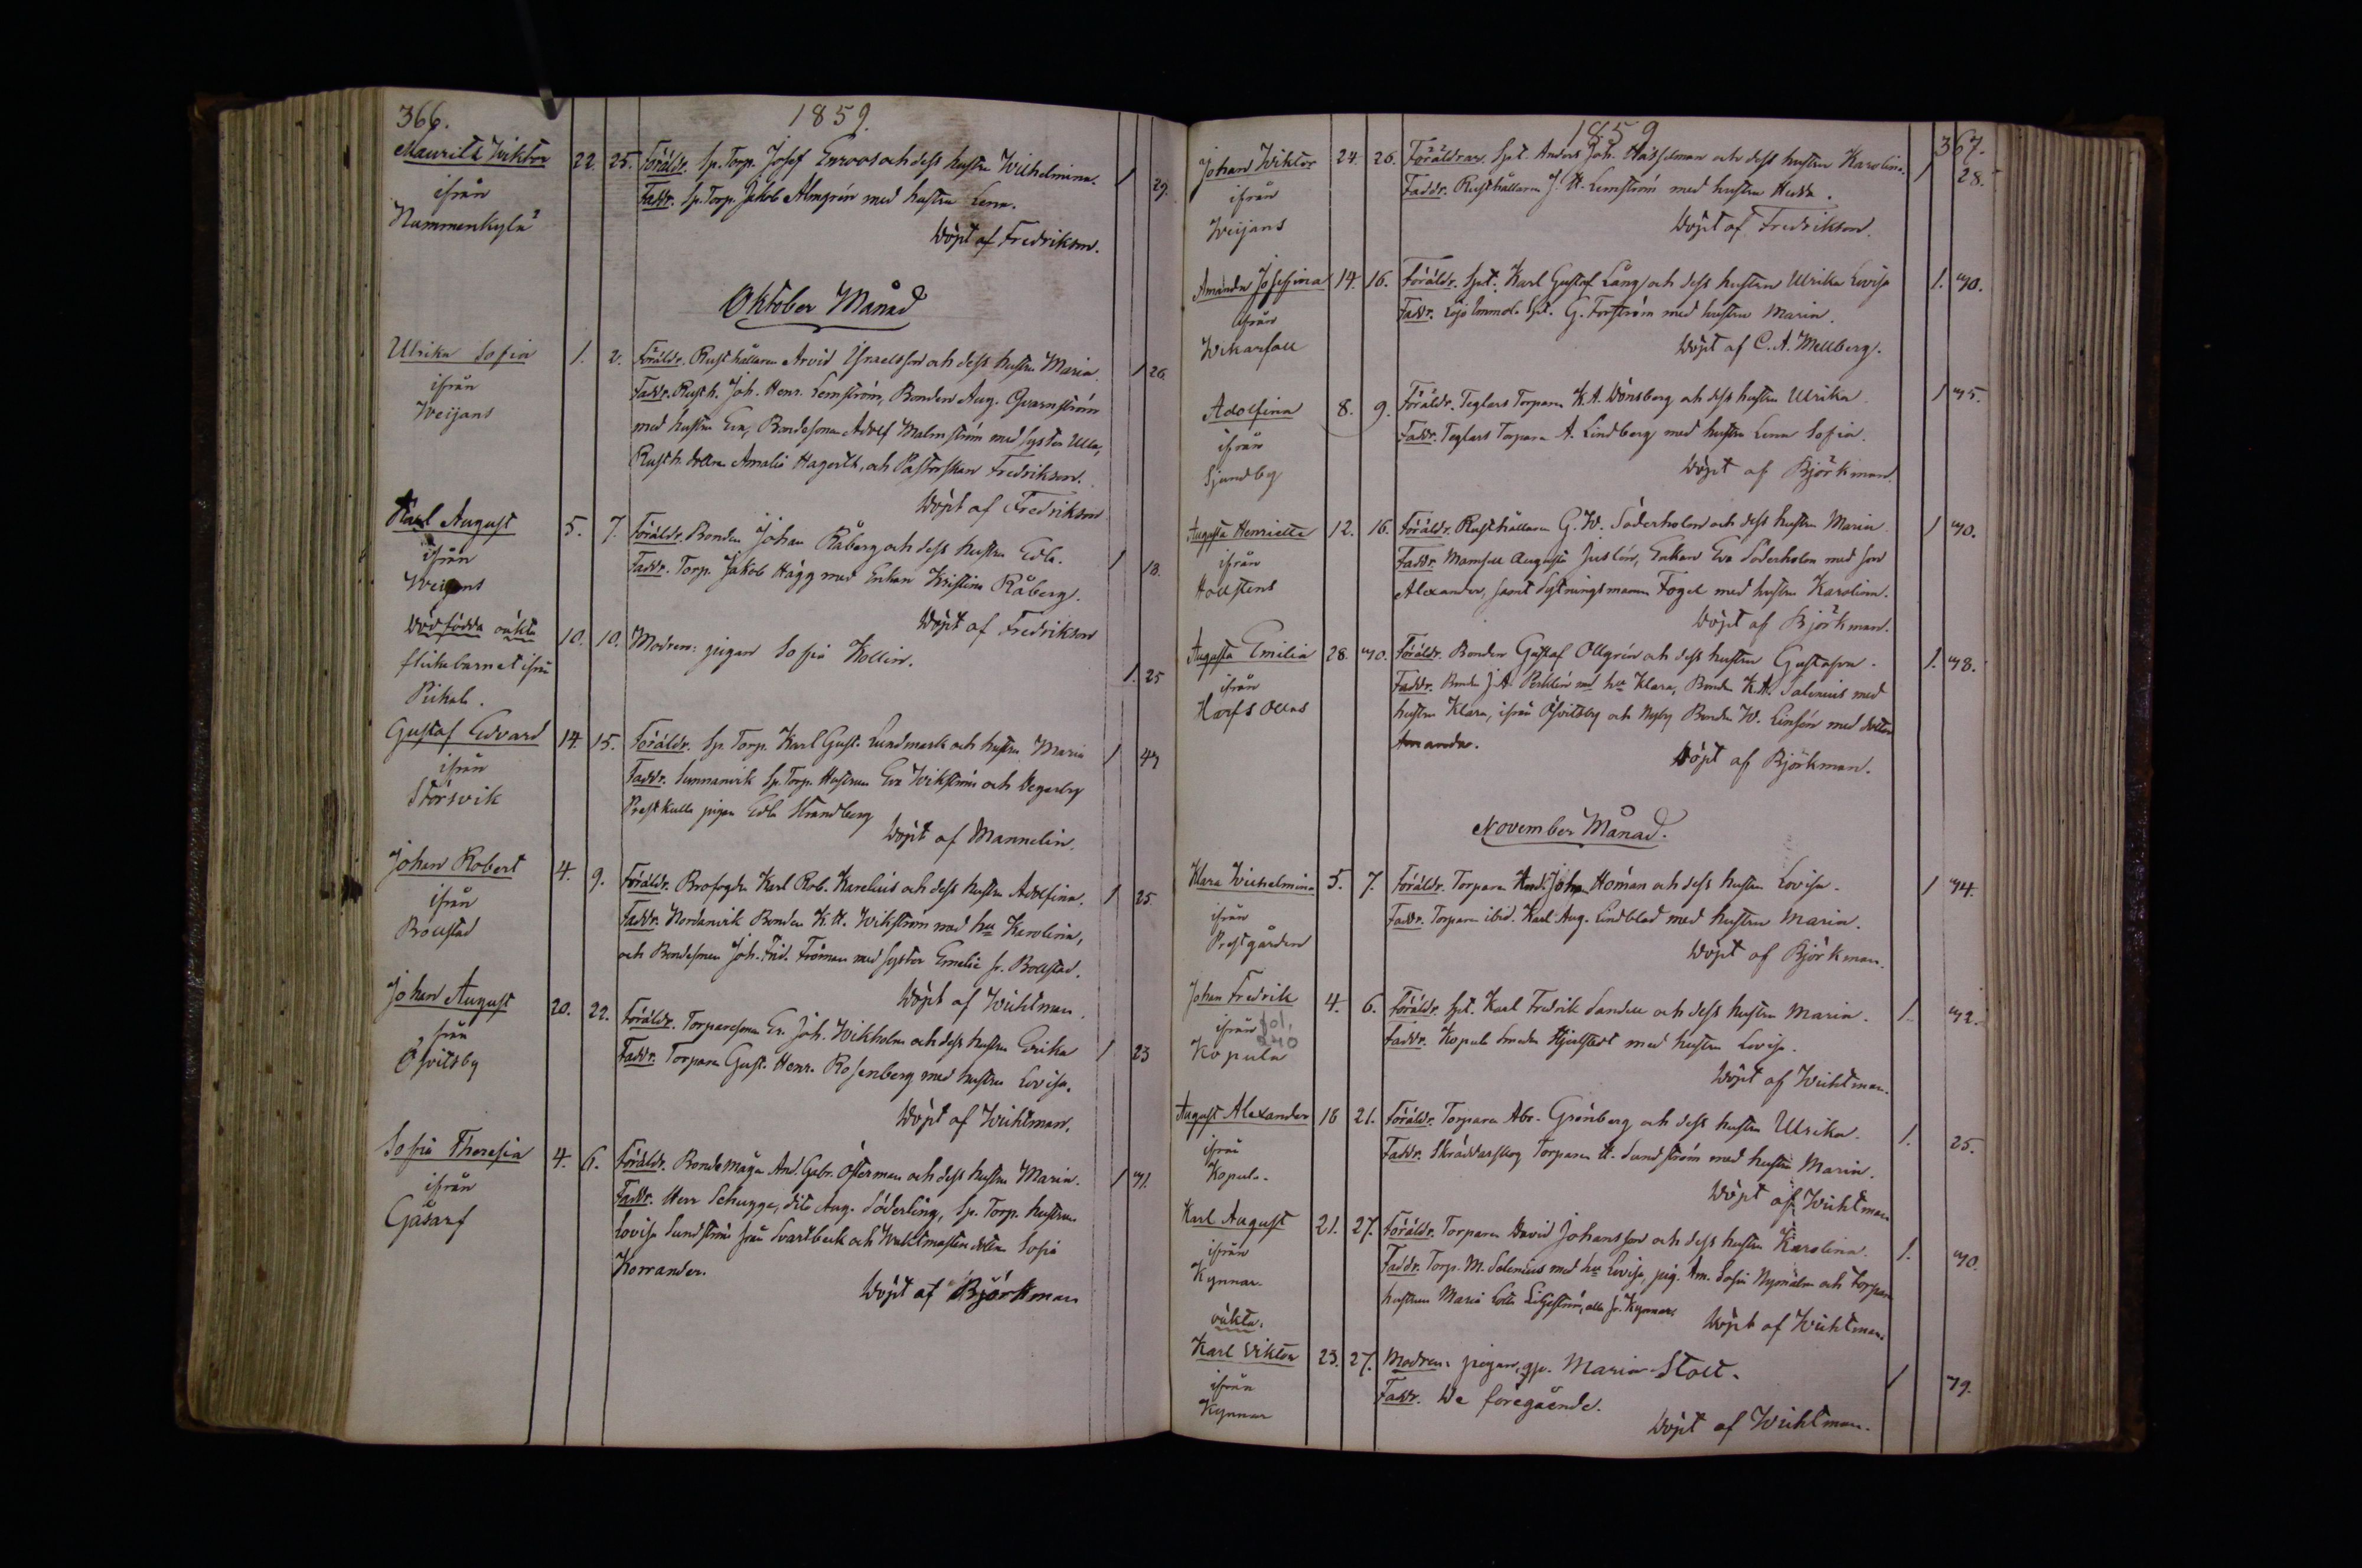 366.
1859.
Mauritz Wiktor 22. 25. Föräldr. Sp. Torp. Josef Enroos och dess hustru Wilhelmina. 1 29.
ifrån Faddr. Sp. Torp. Jakob Almgrén med hustru Lena.
Nummenkylä
Döpt af Fredrikson.
Oktober Månad
Ulrika Sofia 1. 2. Föräldr. Rusthållaren Arvid Israelsson och dess hustru Maria. 1 26.
ifrån Faddr. Rusth. Joh. Henr. Lemström, Bonden Aug. Qvarnström
Weijans med hustru Eva, Bondesonen Adolf Malmström med syster Ulla,
Rusth. dottren Amalia Hagert, och Pastorskan Fredrikson.
Döpt af Fredrikson
Karl August 5. 7. Föräldr. Bonden Johan Råberg och dess hustru Edla. 1 18.
ifrån Faddr. Torp. Jakob Hägg med Enkan Kristina Råberg.
Weijans
Döpt af Fredrikson
Dödfödda oäkta 10. 10. Modren: pigan Sofia Kollin. 1. 25
flickebarnet ifrån
Pickala.
Gustaf Edvard 14. 15. Föräldr. Sp. Torp. Karl Gust. Lundmark och hustru Maria 1 44
ifrån Faddr. Sunnanvik Sp. Torp. Hustrun Eva Wikström och Degerby
Störsvik Prestkulla pigan Edla Strandberg
Döpt af Mannelin.
Johan Robert 4. 9. Föräldr. Brofogden Karl Rob. Karelius och dess hustru Adolfina. 1 25
ifrån Faddr. Nordanvik Bonden K. H. Wikström med hu Karolina,
Böllstad och Bondesonen Joh. Frid. Fröman med syster Emelie fr. Böllstad.
Döpt af Wichtman.
Johan August 20. 22. Föräldr. Torparesonen Er. Joh. Wikholm och dess hustru Erika 1 23
från Faddr. Torparen Gust. Henr. Rosenberg med hustru Lovisa.
Öfvitsby
Döpt af Wichtman.
Sofia Theresia 4. 6. Föräldr. Bondemågen And. Gabr. Österman och dess hustru Maria. 1 41.
ifrån Faddr. Herr Schugge, dito Aug. Söderling, Sp. Torp. hustrun
Gåsarf Lovisa Sundström från Svartbeck och Waktmästare dottren Sofia
Korrander.
Döpt af Björkman
1859
367.
Johan Wiktor 24. 26. Föräldrar. Spt. Anders Joh. Hässelman och dess hustru Karolina. 1 28.
ifrån Faddr. Rusthållaren J. H. Lemström med hustru Hedda.
Weijans
Döpt af Fredrikson.
Amanda Josefina 14. 16. Föräldr. Spt. Karl Gustaf Lång och dess hustru Ulrika Lovisa 1. 40.
ifrån Faddr. Lojo Immola Spt. G. Forström med hustru Maria.
Wikarfall
Döpt af C. A. Mellberg.
Adolfina 8. 9. Föräldr. Teglars Torparen K. A. Dönsberg och dess hustru Ulrika 1 45.
ifrån Faddr. Teglars Torparen A. Lindberg med hustru Lena Sofia.
Sjundby
Döpt af Björkman.
Augusta Henrietta 12. 16. Föräldr. Rusthållaren G. W. Söderholm och dess hustru Maria. 1 40.
ifrån Faddr. Mamsell Augusta Juslén, Enkan Eva Söderholm med son
Hollstens Alexander, samt Sytningsmannen Fogel med hustru Karolina.
Döpt af Björkman.
Augusta Emilia 28. 40. Föräldr. Bonden Gustaf Ollgrén och dess hustru Gustafva. 1. 48.
ifrån Faddr. Bonden J. A. Perklén med hu Klara, Bonden K. A. Salenius med
Harfs Ollas hustru Klara, ifrån Öfvitsby och Nyby Bonden W. Linfén med dotter
Amanda.
Döpt af Björkman.
November Månad.
Klara Wilhelmina 5. 7. Föräldr. Torparen And. Johan Homan och dess hustru Lovisa. 1 44.
ifrån Faddr. Torparen ibid. Karl Aug. Lindblad med hustru Maria.
Prestgården
Döpt af Björkman.
Johan Fredrik 4. 6. Föräldr. Spt. Karl Fredrik Sandell och dess hustru Maria. 1. 42.
ifrån fol. 240 Faddr. Kopula Smeden Hjelstedt med hustru Lovisa.
Kopula
Döpt af Wichtman.
August Alexander 18 21. Föräldr. Torparen Abr. Grönberg och dess hustru Ulrika. 1. 25.
ifrån Faddr. Skräddarskog Torparen H. Sundström med hustru Maria.
Kopula.
Döpt af Wichtman
Karl August 21. 27. Föräldr. Torparen David Johansson och dess hustru Karolina. 1. 40.
ifrån Faddr. Torp. M. Selenius med hu Lovisa, pig. Am. Sofia Nyman och Torpare
Kynnar. hustrun Maria Lotta Liljeström, alla fr. Kynnars
Döpt af Wichtman.
oäkta.
Karl Viktor 23. 27. Modren: pigan, Maria Stolt. 1 49.
ifrån Faddr. De föregående.
Kynnar
Döpt af Wichtman.